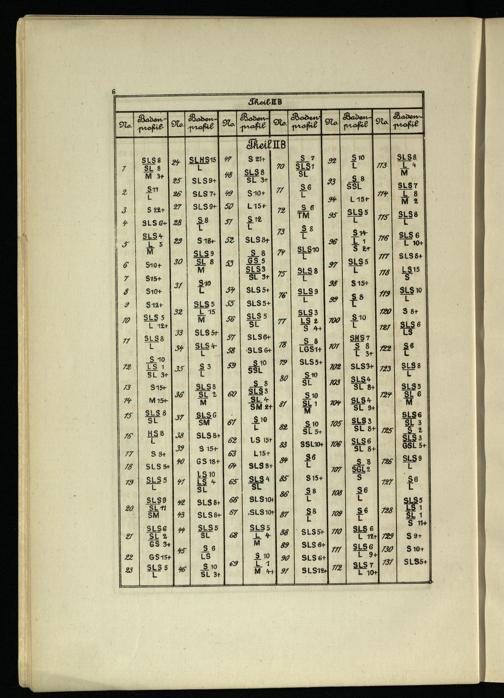 6
Theil II B
No. Boden-profil No. Boden-profil No. Boden-profil No. Boden-profil No. Boden-profil No. Boden-profil
Theil II B
1 SLS 8 / SL 8 / M 3+
2 S 11 / L
3 S 22+
4 SLS 6+
5 SLS 4 / L 5 / M
6 S 10+
7 S 15+
8 S 10+
9 S 12+
10 SLS 5 / L 12+
11 SLS 8 / L
12 S 10 / LS 1 / SL 3+
13 S 15+
14 M 15+
15 SLS 8 / SL
16 HS 8 / L
17 S 8+
18 SLS 5+
19 SLS 5 / L
20 SLS 9 / SL 11 / SM
21 SLS 6 / SL 2 / GS 3+
22 GS 15+
23 SLS 5 / L
24 SLHS 15 / L
25 SLS 9+
26 SLS 7+
27 SLS 9+
28 S 8 / L
29 S 18+
30 SLS 9 / SL 8 / M
31 S 10 / L
32 SLS 5 / L 15 / M
33 SLS 5+
34 SLS 4 / L
35 S 3 / L
36 SLS 8 / SL 2 / M
37 SLS 6 / SM
38 SLS 8+
39 S 15+
40 GS 18+
41 LS 10 / LS 4 / SL
42 SLS 8+
43 SLS 6+
44 SLS 5 / SL
45 S 6 / LS
46 S 10 / SL 3+
47 S 21+
48 SLS 8 / SL 3+
49 S 10+
50 L 15+
51 S 12 / L
52 SLS 8+
53 S 8 / GS 5 / SLS 3 / SL 3+
54 SLS 5+
55 SLS 5+
56 SLS 5 / SL
57 SLS 6+
58 SLS 6+
59 S 10 / SSL
60 S 8 / SLS 3 / SL 4 / SM 2+
61 S 10 / L
62 LS 15+
63 L 15+
64 SLS 8+
65 SLS 4 / SL
66 SLS 10+
67 SLS 10+
68 SLS 5 / L 4 / M
69 S 10 / L 1 / M 4+
70 S 7 / SLS 1 / SL
71 S 6 / L
72 S 6 / TM
73 S 8 / L
74 SLS 10 / L
75 SLS 8 / L
76 SLS 9 / L
77 SLS 3 / LS 2 / S 4+
78 S 8 / LGS 1+
79 SLS 5+
80 S 10 / SL
81 S 10 / SL 1 / M
82 S 10 / SL 5+
83 SSL 10+
84 S 6 / L
85 S 15+
86 S 8 / L
87 S 8 / L
88 SLS 5+
89 SLS 6+
90 SLS 6+
91 SLS 12+
92 S 10 / L
93 S 8 / SSL
94 L 15+
95 SLS 5 / L
96 S 14 / L 1 / S 2+
97 SLS 5 / L
98 S 15+
99 S 8 / L
100 S 10 / L
101 SHS 7 / S 8 / L 3+
102 SLS 3+
103 SLS 4 / SL 8+
104 SLS 4 / SL 9+
105 SLS 3 / SL 8+
106 SLS 6 / SL 8+
107 S 8 / SGL 2 / S
108 S 6 / L
109 S 6 / L
110 SLS 6 / L 12+
111 SLS 6 / L 9+
112 SLS 7 / L 10+
113 SLS 8 / L 4 / M
114 SLS 7 / L 8 / M 2
115 SLS 8 / L
116 SLS 6 / L 10+
117 SLS 8+
118 LS 15 / S
119 SLS 10 / L
120 S 8+
121 SLS 6 / LS
122 S 6 / L
123 SLS 8 / L
124 SLS 5 / SL 6 / M
125 SLS 6 / SL 3 / S 2 / SLS 3 / GSL 5+
126 SLS 9 / L
127 S 6 / L
128 SLS 5 / LS 1 / SL 1 / S 11+
129 S 9+
130 S 10+
131 SLS 5+